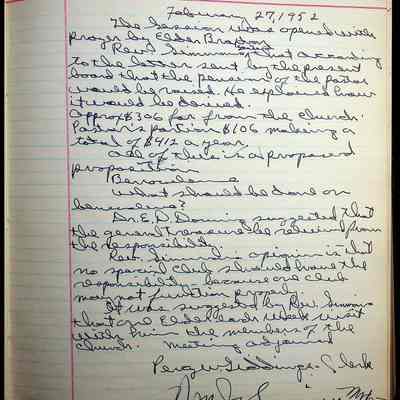 February 27, 1952
The session was opened with
prayer by Elder
Rev. Simmons said that according
to the letter sent by the present
board that the pension of the pastor
would be raised. He explained how
it would be derived.
Approx $306 for from the church.
Pastor's portion $106 making a
total of $412 a year.
all of this is a proposed
proposition
Benevolence
What should be done on
benevolence?
Dr. E. D. suggested that
the general treasure be relieved from
the responsibility.
Rev. Simmons opinion is that
no special club should have the
responsibility because one club
may not function properly.
It was suggested by Rev. Simmons
that one Elder each week visit
with him the members of the
church. Meeting adjourned
Percy W. Giddings - Clerk